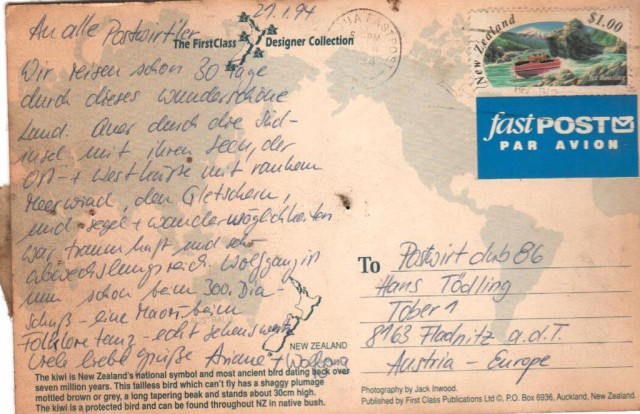 21.1.94
An alle Postwirtler
The FirstClass Designer Collection
Wir reisen schon 30 Tage
durch dieses wunderschöne
Land. Quer durch die Süd-
insel mit ihren Seen, der
Ost- + Westküste mit rauhem
Meerwind, den Gletschern,
und segel + wandermöglichkeiten
war traumhaft und sehr
abwechslungsreich. Wolfgang ist
nun schon beim 300. Dia-
Schuß - eine Maori beim
Folkloretanz - echt sehenswert
Viele liebe Grüße Ariane + Wolfgang
NEW ZEALAND
The kiwi is New Zealand's national symbol and most ancient bird dating back over
seven million years. This tailless bird which can't fly has a shaggy plumage
mottled brown or grey, a long tapering beak and stands about 30cm high.
The kiwi is a protected bird and can be found throughout NZ in native bush.
New Zealand
$1.00
fastPOST
PAR AVION
To
Postwirt club 86
Hans Tödling
Tober 1
8163 Fladnitz a.d.T.
Austria - Europe
Photography by Jack Inwood.
Published by First Class Publications Ltd © P.O. Box 6936, Auckland, New Zealand.